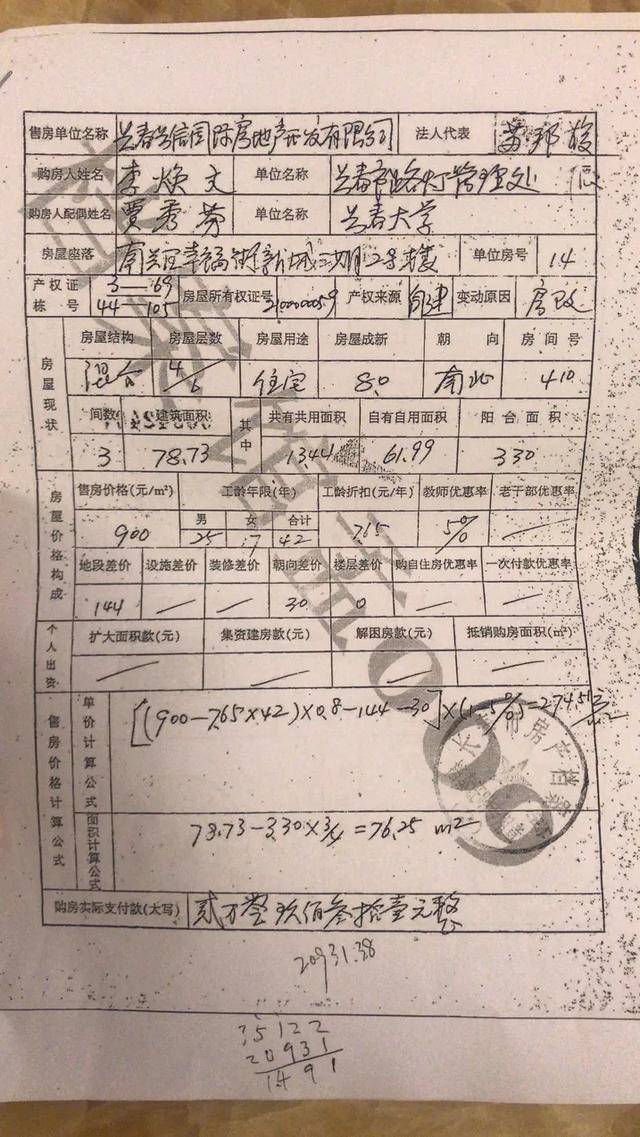 售房单位名称 长春长信国际房地产开发有限公司 法人代表
购房人姓名 李焕文 单位名称 长春市路灯管理处
购房人配偶姓名 贾秀芬 单位名称 长春大学
房屋座落 南关区幸福街 2号楼 单位房号 14
产权证栋号 3—69 44—105 房屋所有权证号 210000059 产权来源 自建 变动原因 房改
房屋现状
房屋结构 房屋层数 房屋用途 房屋成新 朝向 房间号
混合 4/6 住宅 80 南北 410
间数 建筑面积 其中 共有共用面积 自有自用面积 阳台面积
3 78.73 13.44 61.99 3.30
房屋价格构成
售房价格(元/m²) 工龄年限(年) 工龄折扣(元/年) 教师优惠率 老干部优惠率
男 女 合计
900 25 17 42 7.65 5% —
地段差价 设施差价 装修差价 朝向差价 楼层差价 购自住房优惠率 一次付款优惠率
144 — — 30 0 — —
个人出资
扩大面积款(元) 集资建房款(元) 解困房款(元) 抵销购房面积(m²)
— — — —
售房价格计算公式
单价计算公式
[(900-7.65×42)×0.8-144-30]×(1-5%)=274.51元
面积计算公式
78.73-3.30×3/4=76.25 m²
购房实际支付款(大写) 贰万零玖佰叁拾壹元整
20931.38
35122
20931
1491